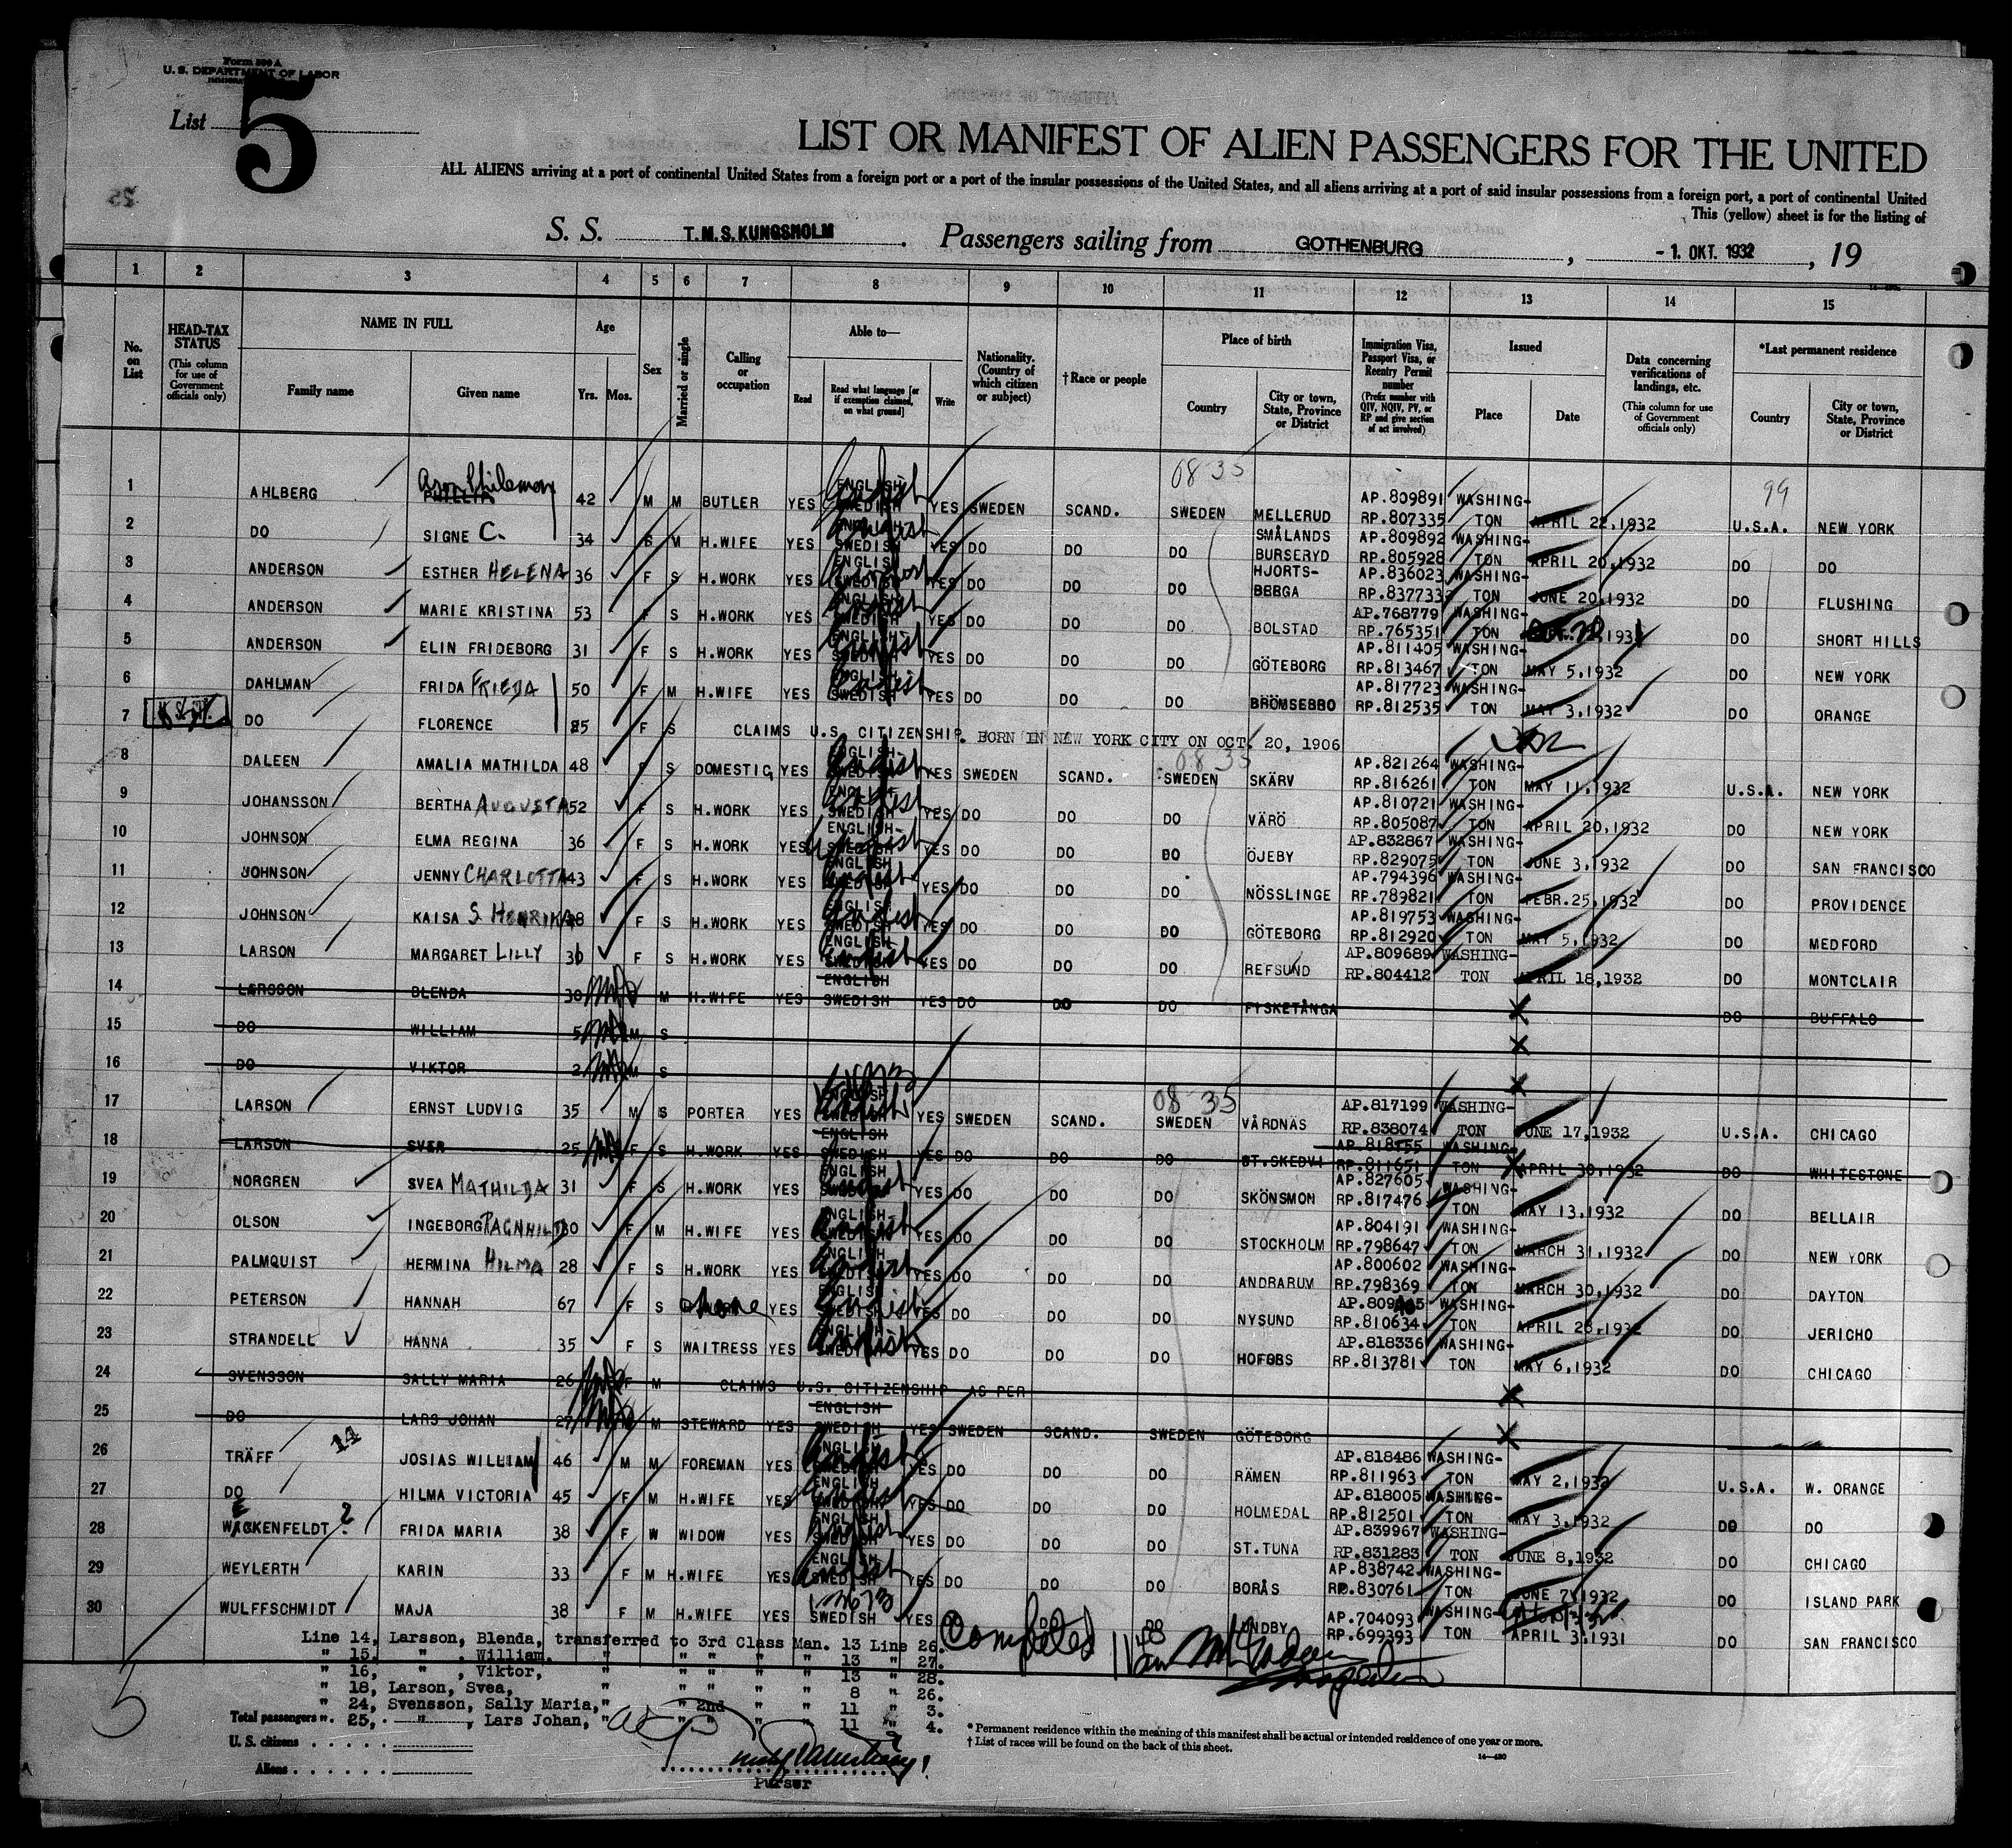 Form 500 A
U. S. DEPARTMENT OF LABOR
List 5
LIST OR MANIFEST OF ALIEN PASSENGERS FOR THE UNITED
ALL ALIENS arriving at a port of continental United States from a foreign port or a port of the insular possessions of the United States, and all aliens arriving at a port of said insular possessions from a foreign port, a port of continental United
This (yellow) sheet is for the listing of
S. S. T.M.S. KUNGSHOLM. Passengers sailing from GOTHENBURG, - 1. OKT. 1932, 19
1 2 3 4 5 6 7 8 9 10 11 12 13 14 15
No. on List
HEAD-TAX STATUS (This column for use of Government officials only)
NAME IN FULL Family name Given name
Age Yrs. Mos.
Sex
Married or single
Calling or occupation
Able to— Read Read what language [or if exemption claimed, on what ground] Write
Nationality. (Country of which citizen or subject)
†Race or people
Place of birth Country City or town, State, Province or District
Immigration Visa, Passport Visa, or Reentry Permit number (Prefix number with QIV, NQIV, PV, or RP and give section of act involved)
Issued Place Date
Data concerning verifications of landings, etc. (This column for use of Government officials only)
*Last permanent residence Country City or town, State, Province or District
08 35 99
1 AHLBERG 42 M M BUTLER YES ENGLISH SWEDISH YES SWEDEN SCAND. SWEDEN MELLERUD AP.809891 RP.807335 WASHINGTON APRIL 22,1932 U.S.A. NEW YORK
2 DO SIGNE C. 34 M H.WIFE YES ENGLISH SWEDISH YES DO DO DO SMÅLANDS BURSERYD AP.809892 RP.805928 WASHINGTON APRIL 20,1932 DO DO
3 ANDERSON ESTHER HELENA 36 F S H.WORK YES ENGLISH SWEDISH YES DO DO DO HJORTS-BERGA AP.836023 RP.837733 WASHINGTON JUNE 20,1932 DO FLUSHING
4 ANDERSON MARIE KRISTINA 53 F S H.WORK YES ENGLISH SWEDISH YES DO DO DO BOLSTAD AP.768779 RP.765351 WASHINGTON DO SHORT HILLS
5 ANDERSON ELIN FRIDEBORG 31 F S H.WORK YES ENGLISH SWEDISH YES DO DO DO GÖTEBORG AP.811405 RP.813467 WASHINGTON MAY 5,1932 DO NEW YORK
6 DAHLMAN FRIDA FRIEDA 50 F M H.WIFE YES ENGLISH SWEDISH YES DO DO DO BRÖMSEBRO AP.817723 RP.812535 WASHINGTON MAY 3,1932 DO ORANGE
7 DO FLORENCE 25 F S CLAIMS U.S. CITIZENSHIP. BORN IN NEW YORK CITY ON OCT. 20, 1906
08 35
8 DALEEN AMALIA MATHILDA 48 F S DOMESTIC YES ENGLISH SWEDISH YES SWEDEN SCAND. SWEDEN SKÄRV AP.821264 RP.816261 WASHINGTON MAY 11,1932 U.S.A. NEW YORK
9 JOHANSSON BERTHA AUGUSTA 52 F S H.WORK YES ENGLISH SWEDISH YES DO DO DO VÄRÖ AP.810721 RP.805087 WASHINGTON APRIL 20,1932 DO NEW YORK
10 JOHNSON ELMA REGINA 36 F S H.WORK YES ENGLISH SWEDISH YES DO DO DO ÖJEBY AP.832867 RP.829075 WASHINGTON JUNE 3,1932 DO SAN FRANCISCO
11 JOHNSON JENNY CHARLOTTA 43 F S H.WORK YES ENGLISH SWEDISH YES DO DO DO NÖSSLINGE AP.794396 RP.789821 WASHINGTON FEBR.25,1932 DO PROVIDENCE
12 JOHNSON KAISA S HENRIKA F S H.WORK YES ENGLISH SWEDISH YES DO DO DO GÖTEBORG AP.819753 RP.812920 WASHINGTON MAY 5,1932 DO MEDFORD
13 LARSON MARGARET LILLY 36 F S H.WORK YES ENGLISH SWEDISH YES DO DO DO REFSUND AP.809689 RP.804412 WASHINGTON APRIL 18,1932 DO MONTCLAIR
14 LARSSON BLENDA 30 F M H.WIFE YES ENGLISH SWEDISH YES DO DO DO FYSKETÅNGA X DO BUFFALO
15 DO WILLIAM 5 M S X
16 DO VIKTOR 2 M S X
08 35
17 LARSON ERNST LUDVIG 35 M S PORTER YES ENGLISH YES SWEDEN SCAND. SWEDEN VÅRDNÄS AP.817199 RP.838074 WASHINGTON JUNE 17,1932 U.S.A. CHICAGO
18 LARSON SVER 25 F S H.WORK YES ENGLISH SWEDISH YES DO DO DO ST.SKEDVI AP.818155 RP.811651 WASHINGTON X APRIL 30,1932 DO WHITESTONE
19 NORGREN SVEA MATHILDA 31 F S H.WORK YES ENGLISH SWEDISH YES DO DO DO SKÖNSMON AP.827605 RP.817476 WASHINGTON MAY 13,1932 DO BELLAIR
20 OLSON INGEBORG RAGNHILD 30 F M H.WIFE YES ENGLISH SWEDISH YES DO DO DO STOCKHOLM AP.804191 RP.798647 WASHINGTON MARCH 31,1932 DO NEW YORK
21 PALMQUIST HERMINA HILMA 28 F S H.WORK YES ENGLISH SWEDISH YES DO DO DO ANDRARUM AP.800602 RP.798369 WASHINGTON MARCH 30,1932 DO DAYTON
22 PETERSON HANNAH 67 F S none YES ENGLISH SWEDISH YES DO DO DO NYSUND RP.810634 WASHINGTON APRIL 28,1932 DO JERICHO
23 STRANDELL HANNA 35 F S WAITRESS YES ENGLISH SWEDISH YES DO DO DO HOFORS AP.818336 RP.813781 WASHINGTON MAY 6,1932 DO CHICAGO
24 SVENSSON SALLY MARIA 26 F M CLAIMS U.S. CITIZENSHIP AS PER X
25 DO LARS JOHAN 27 M M STEWARD YES ENGLISH SWEDISH YES SWEDEN SCAND. SWEDEN GÖTEBORG X
14
26 TRÄFF JOSIAS WILLIAM 46 M M FOREMAN YES ENGLISH SWEDISH YES DO DO DO RÄMEN AP.818486 RP.811963 WASHINGTON MAY 2,1932 U.S.A. W. ORANGE
27 DO HILMA VICTORIA 45 F M H.WIFE YES ENGLISH SWEDISH YES DO DO DO HOLMEDAL AP.818005 RP.812501 WASHINGTON MAY 3,1932 DO DO
28 WACKENFELDT ? FRIDA MARIA 38 F W WIDOW YES ENGLISH SWEDISH YES DO DO DO ST.TUNA AP.839967 RP.831283 WASHINGTON JUNE 8,1932 DO CHICAGO
29 WEYLERTH KARIN 33 F M H.WIFE YES ENGLISH SWEDISH YES DO DO DO BORÅS AP.838742 RP.830761 WASHINGTON JUNE 7,1932 DO ISLAND PARK
30 WULFFSCHMIDT MAJA 38 F M H.WIFE YES SWEDISH YES DO DO DO LUNDBY AP.704093 RP.699393 WASHINGTON APRIL 3,1931 DO SAN FRANCISCO
Completed
Line 14, Larsson, Blenda, transferred to 3rd Class Man. 13 Line 26.
" 15, " , William, " " " " " 13 " 27.
" 16, " , Viktor, " " " " " 13 " 28.
" 18, Larson, Svea, " " " " " 8 " 26.
" 24, Svensson, Sally Maria, " " 2nd " " 11 " 3.
" 25, " , Lars Johan, " " " " " 11 " 4.
5
Total passengers
U. S. citizens
Aliens
Purser
* Permanent residence within the meaning of this manifest shall be actual or intended residence of one year or more.
† List of races will be found on the back of this sheet.
14—430